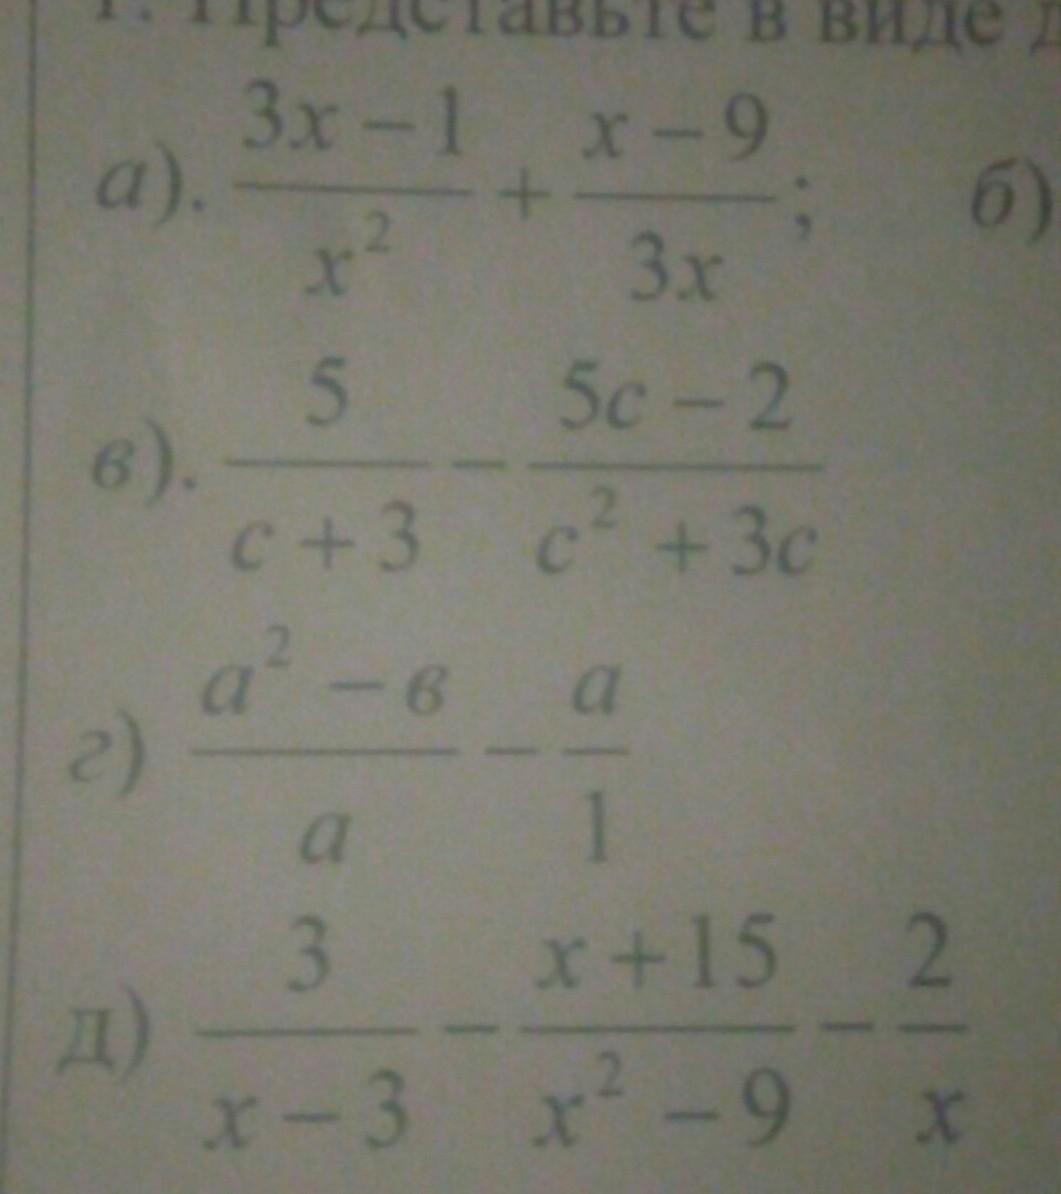 1. Представьте в виде
а). \frac{3x-1}{x^2} + \frac{x-9}{3x}; б)
в). \frac{5}{c+3} - \frac{5c-2}{c^2+3c}
г) \frac{a^2-в}{a} - \frac{a}{1}
д) \frac{3}{x-3} - \frac{x+15}{x^2-9} - \frac{2}{x}